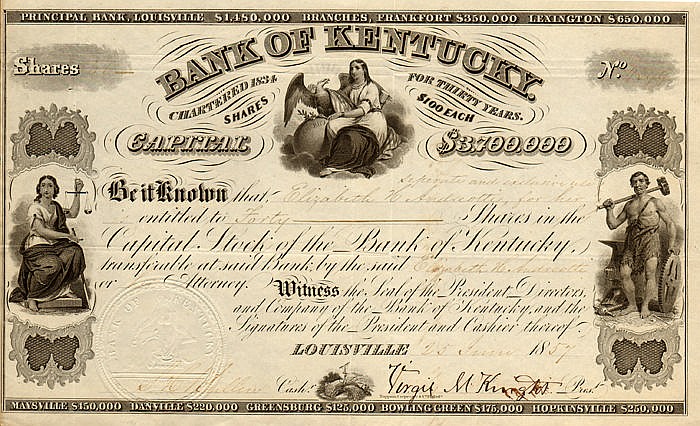 PRINCIPAL BANK, LOUISVILLE $1,480,000 BRANCHES, FRANKFORT $350,000 LEXINGTON $650,000
Shares
BANK OF KENTUCKY.
No.
CHARTERED 1834 FOR THIRTY YEARS.
SHARES $100 EACH
CAPITAL $3,700,000
separate and exclusive use
Be it Known that, Elizabeth H. for her
is entitled to Forty Shares in the
Capital Stock of the Bank of Kentucky,
transferable at said Bank by the said Elizabeth H.
or Attorney. Witness the Seal of the President, Directors,
and Company of the Bank of Kentucky, and the
Signatures of the President and Cashier thereof
LOUISVILLE 23 June 1857
Cashr. Virgil McKnight Prest.
MAYSVILLE $450,000 DANVILLE $220,000 GREENSBURG $125,000 BOWLING GREEN $175,000 HOPKINSVILLE $250,000